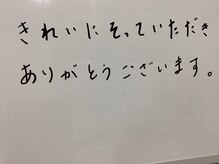 きれいにそっていただき
ありがとうございます。